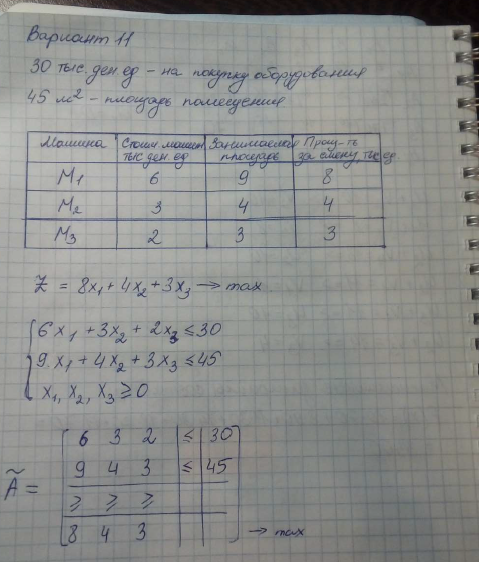 Вариант 11
30 тыс. ден ед – на покупку оборудования
45 м² – площадь помещения
Машина Стоим. машин. тыс ден. ед Занимаемая площадь Произ-ть за смену, тыс ед
М1 6 9 8
М2 3 4 4
М3 2 3 3
Z = 8x₁ + 4x₂ + 3x₃ → max
6x₁ + 3x₂ + 2x₃ ≤ 30
9x₁ + 4x₂ + 3x₃ ≤ 45
x₁, x₂, x₃ ≥ 0
6 3 2 ≤ 30
9 4 3 ≤ 45
Ã =
≥ ≥ ≥
8 4 3 → max